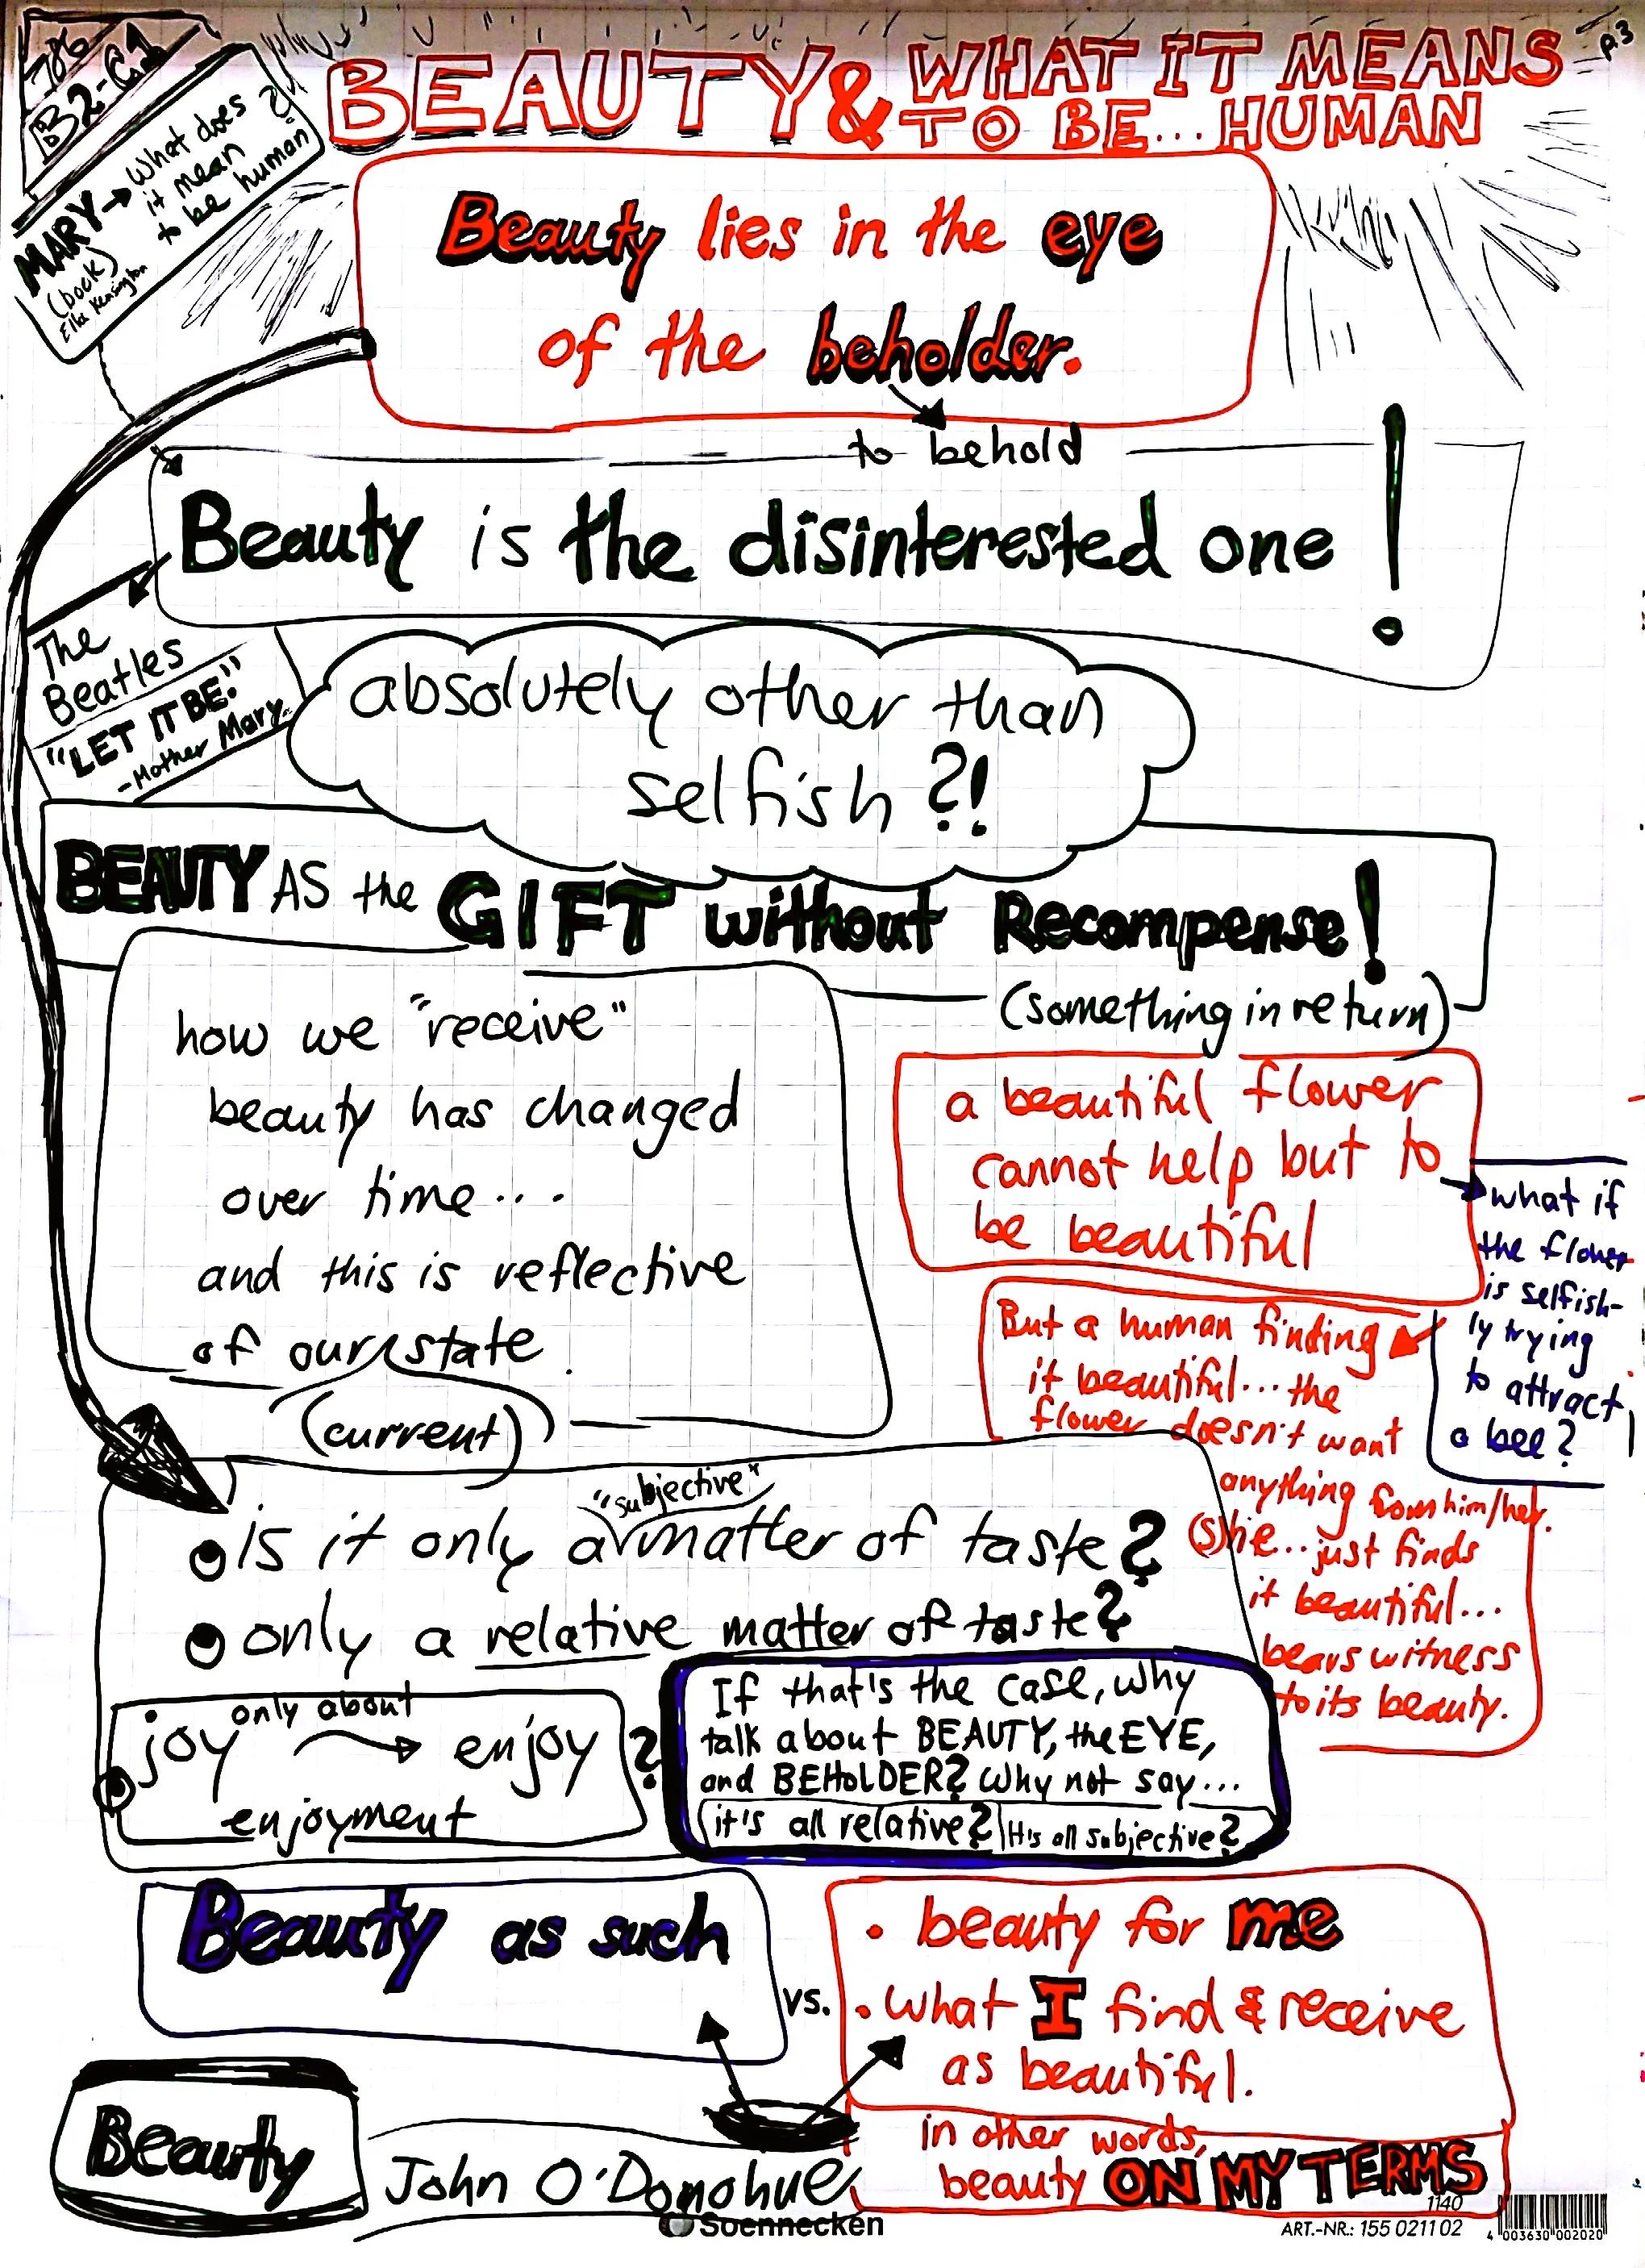 786
B2-C1
MARY → What does
it mean
to be human?
(book)
Ella Kensington
p.3
BEAUTY & WHAT IT MEANS
TO BE... HUMAN
Beauty lies in the eye
of the beholder.
to behold
Beauty is the disinterested one!
The
Beatles
"LET IT BE."
-Mother Mary..
absolutely other than
selfish?!
BEAUTY AS the GIFT without Recompense!
(something in return)
how we "receive"
beauty has changed
over time...
and this is reflective
of our state
(current)
a beautiful flower
cannot help but to
be beautiful
what if
the flower
is selfish-
ly trying
to attract
a bee?
But a human finding
it beautiful... the
flower doesn't want
anything from him/her.
(S)he... just finds
it beautiful...
bears witness
to its beauty.
"subjective"
is it only a matter of taste?
only a relative matter of taste?
joy only about → enjoy ?
enjoyment
If that's the case, why
talk about BEAUTY, the EYE,
and BEHOLDER? Why not say...
it's all relative? It's all subjective?
Beauty as such
vs.
• beauty for me
• what I find & receive
as beautiful.
in other words,
beauty ON MY TERMS
Beauty
John O'Donohue
Soennecken
1140
ART.-NR.: 155 0211 02
4 003630 002020